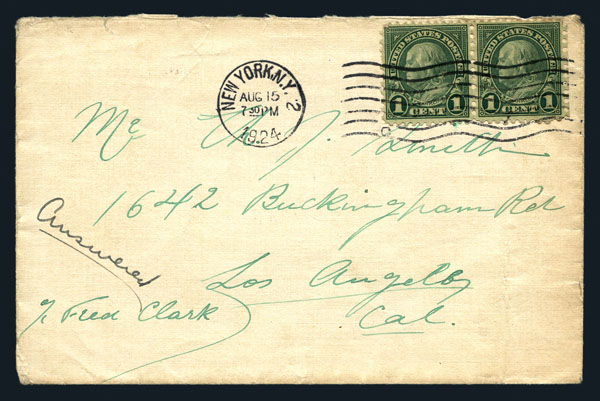 UNITED STATES POSTAGE
1 CENT 1
UNITED STATES POSTAGE
1 CENT 1
NEW YORK, N.Y. 2
AUG 15
7 30 PM
1924
Mr J. Smith
1642 Buckingham Rd
Los Angeles
Cal.
Answered
% Fred Clark